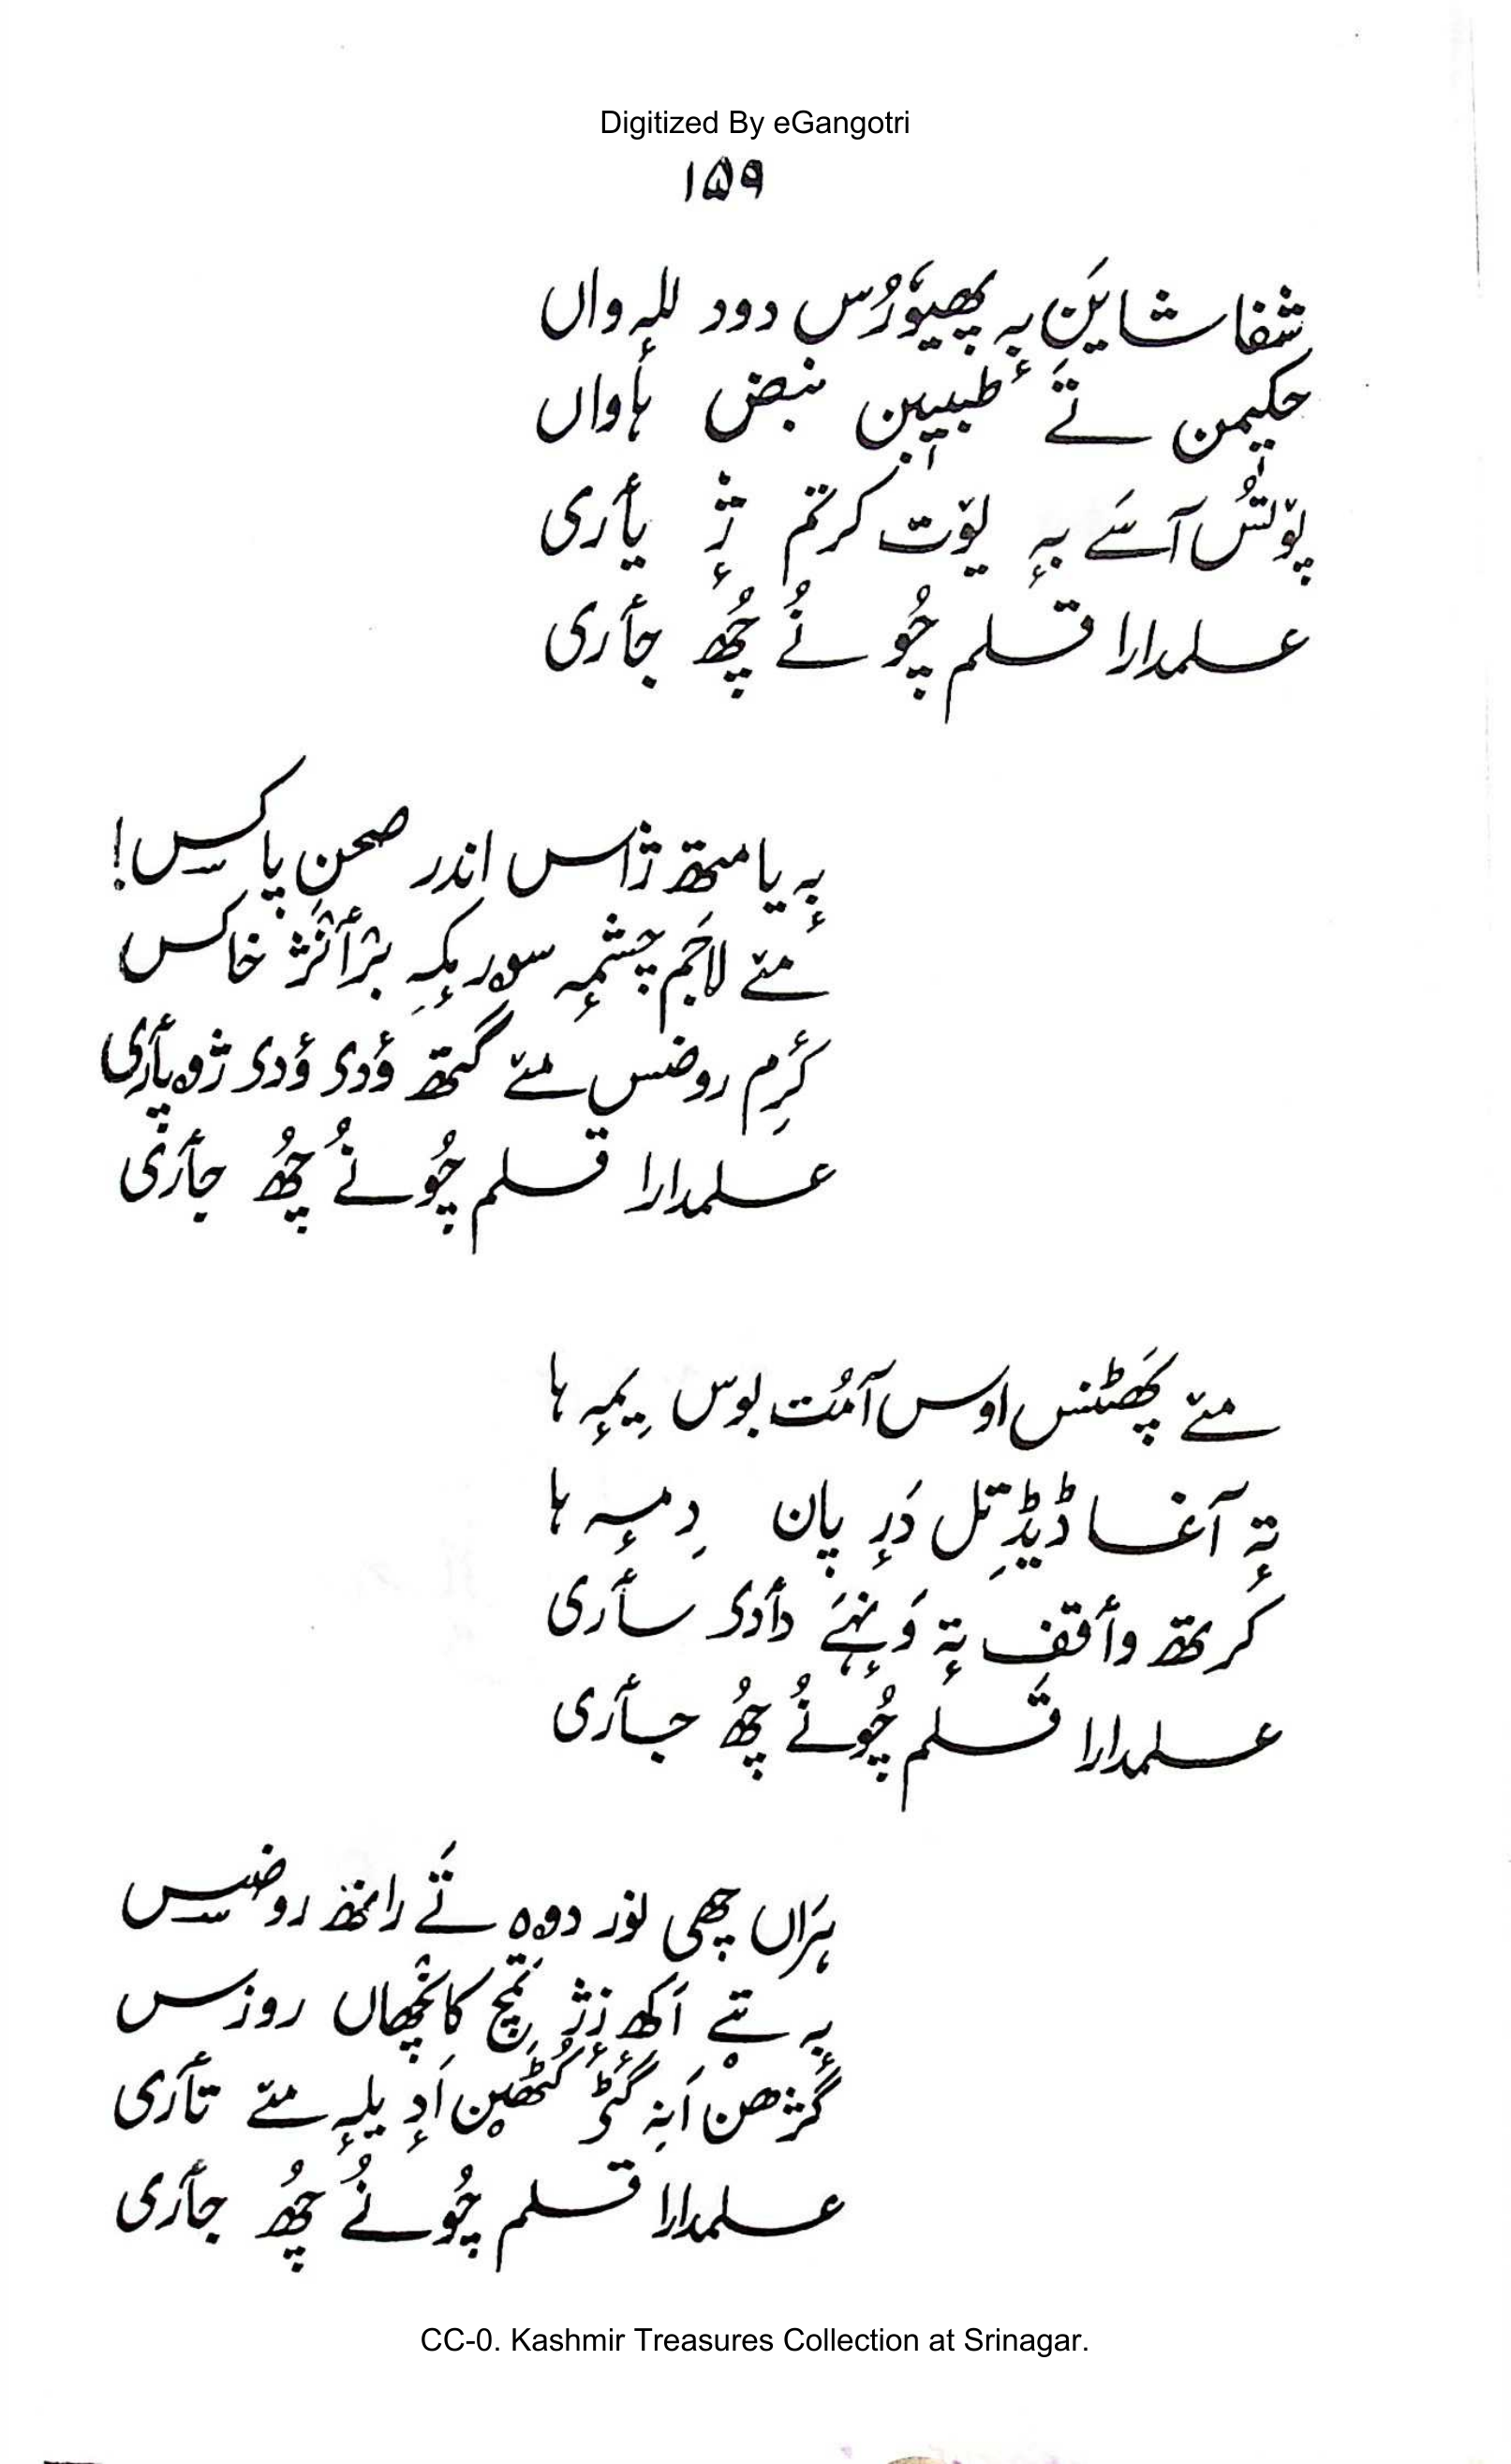 Digitized By eGangotri
۱۵۹
شفا شاین بہٕ پھیوٗرُس دود للہٕ واں
حکیمن تَے طبیبن نبض ہأواں
پوٚتُس آسَے بہٕ یوٚت کرتم ژٕ یأری
علمدارا قلم چُونُے چُھ جأری
بہٕ یامتھ ژاس اندر صحنِ پاکس!
مےٚ لاجَم چشمہٕ سورمکہِ بژأنَژ خاکس
کٔرِم روضس مےٚ گتھ وٕدی وٕدی ژوپأری
علمدارا قلم چُونُے چُھ جأری
مےٚ پَھٹنس اوس آمُت بوس یِمہٕ ہا
تہٕ آغا ڈیڈِ تل دَرٕ پان دِمہٕ ہا
کَرتھ وأقف تہٕ وَنہٕے دأدی سأری
علمدارا قلم چُونُے چُھ جأری
ہَراں چھی نور دوہ تَے راتھ روضس
بہٕ تے اَکھ زٕژ تَمِچ کانچھاں روزس
گژھن اَنہِ گٔٹی کُٹھین اَدٕ یلہٕ مےٚ تأری
علمدارا قلم چُونُے چُھ جأری
CC-0. Kashmir Treasures Collection at Srinagar.